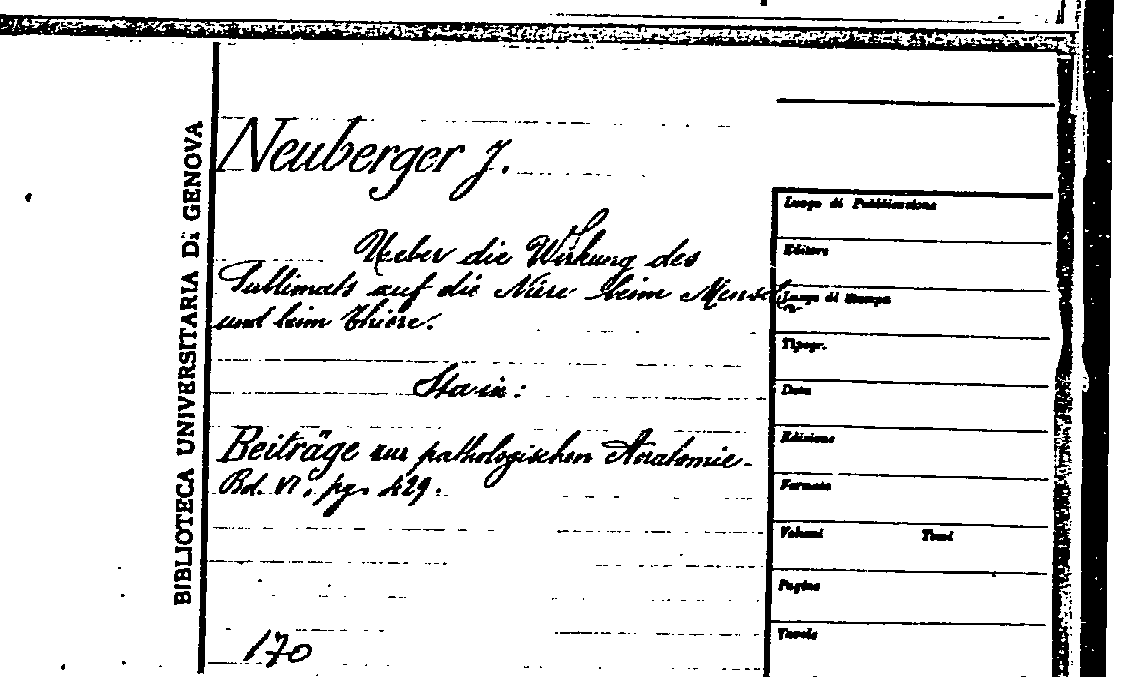 BIBLIOTECA UNIVERSITARIA Di GENOVA
Neuberger J.
Ueber die Wirkung des
Sublimats auf die Niere beim Menschen
und beim Thiere.
Sta in:
Beiträge zur pathologischen Anatomie.
Bd. VI. pg. 429.
170
Luogo di Pubblicazione
Editore
Luogo di Stampa
Tipogr.
Data
Edizione
Formato
Volumi Tomi
Pagine
Tavole